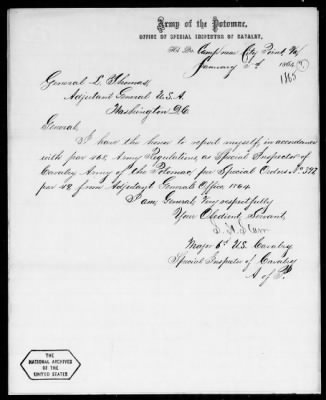 Army of the Potomac,
OFFICE OF SPECIAL INSPECTOR OF CAVALRY,
Hd. Qrs. Camp near City Point, Va
January 3d 1864 (?)
1865
General L. Thomas
Adjutant General U.S.A.
Washington D.C.
General,
I have the honor to report myself, in accordance
with par 468, Army Regulations, as Special Inspector of
Cavalry Army of the Potomac, per Special Orders No. 392
par 48 from Adjutant Generals Office 1864.
I am, General, Very respectfully
Your Obedient Servant,
Major 6th U.S. Cavalry
Special Inspector of Cavalry
A of P.
THE
NATIONAL ARCHIVES
OF THE
UNITED STATES